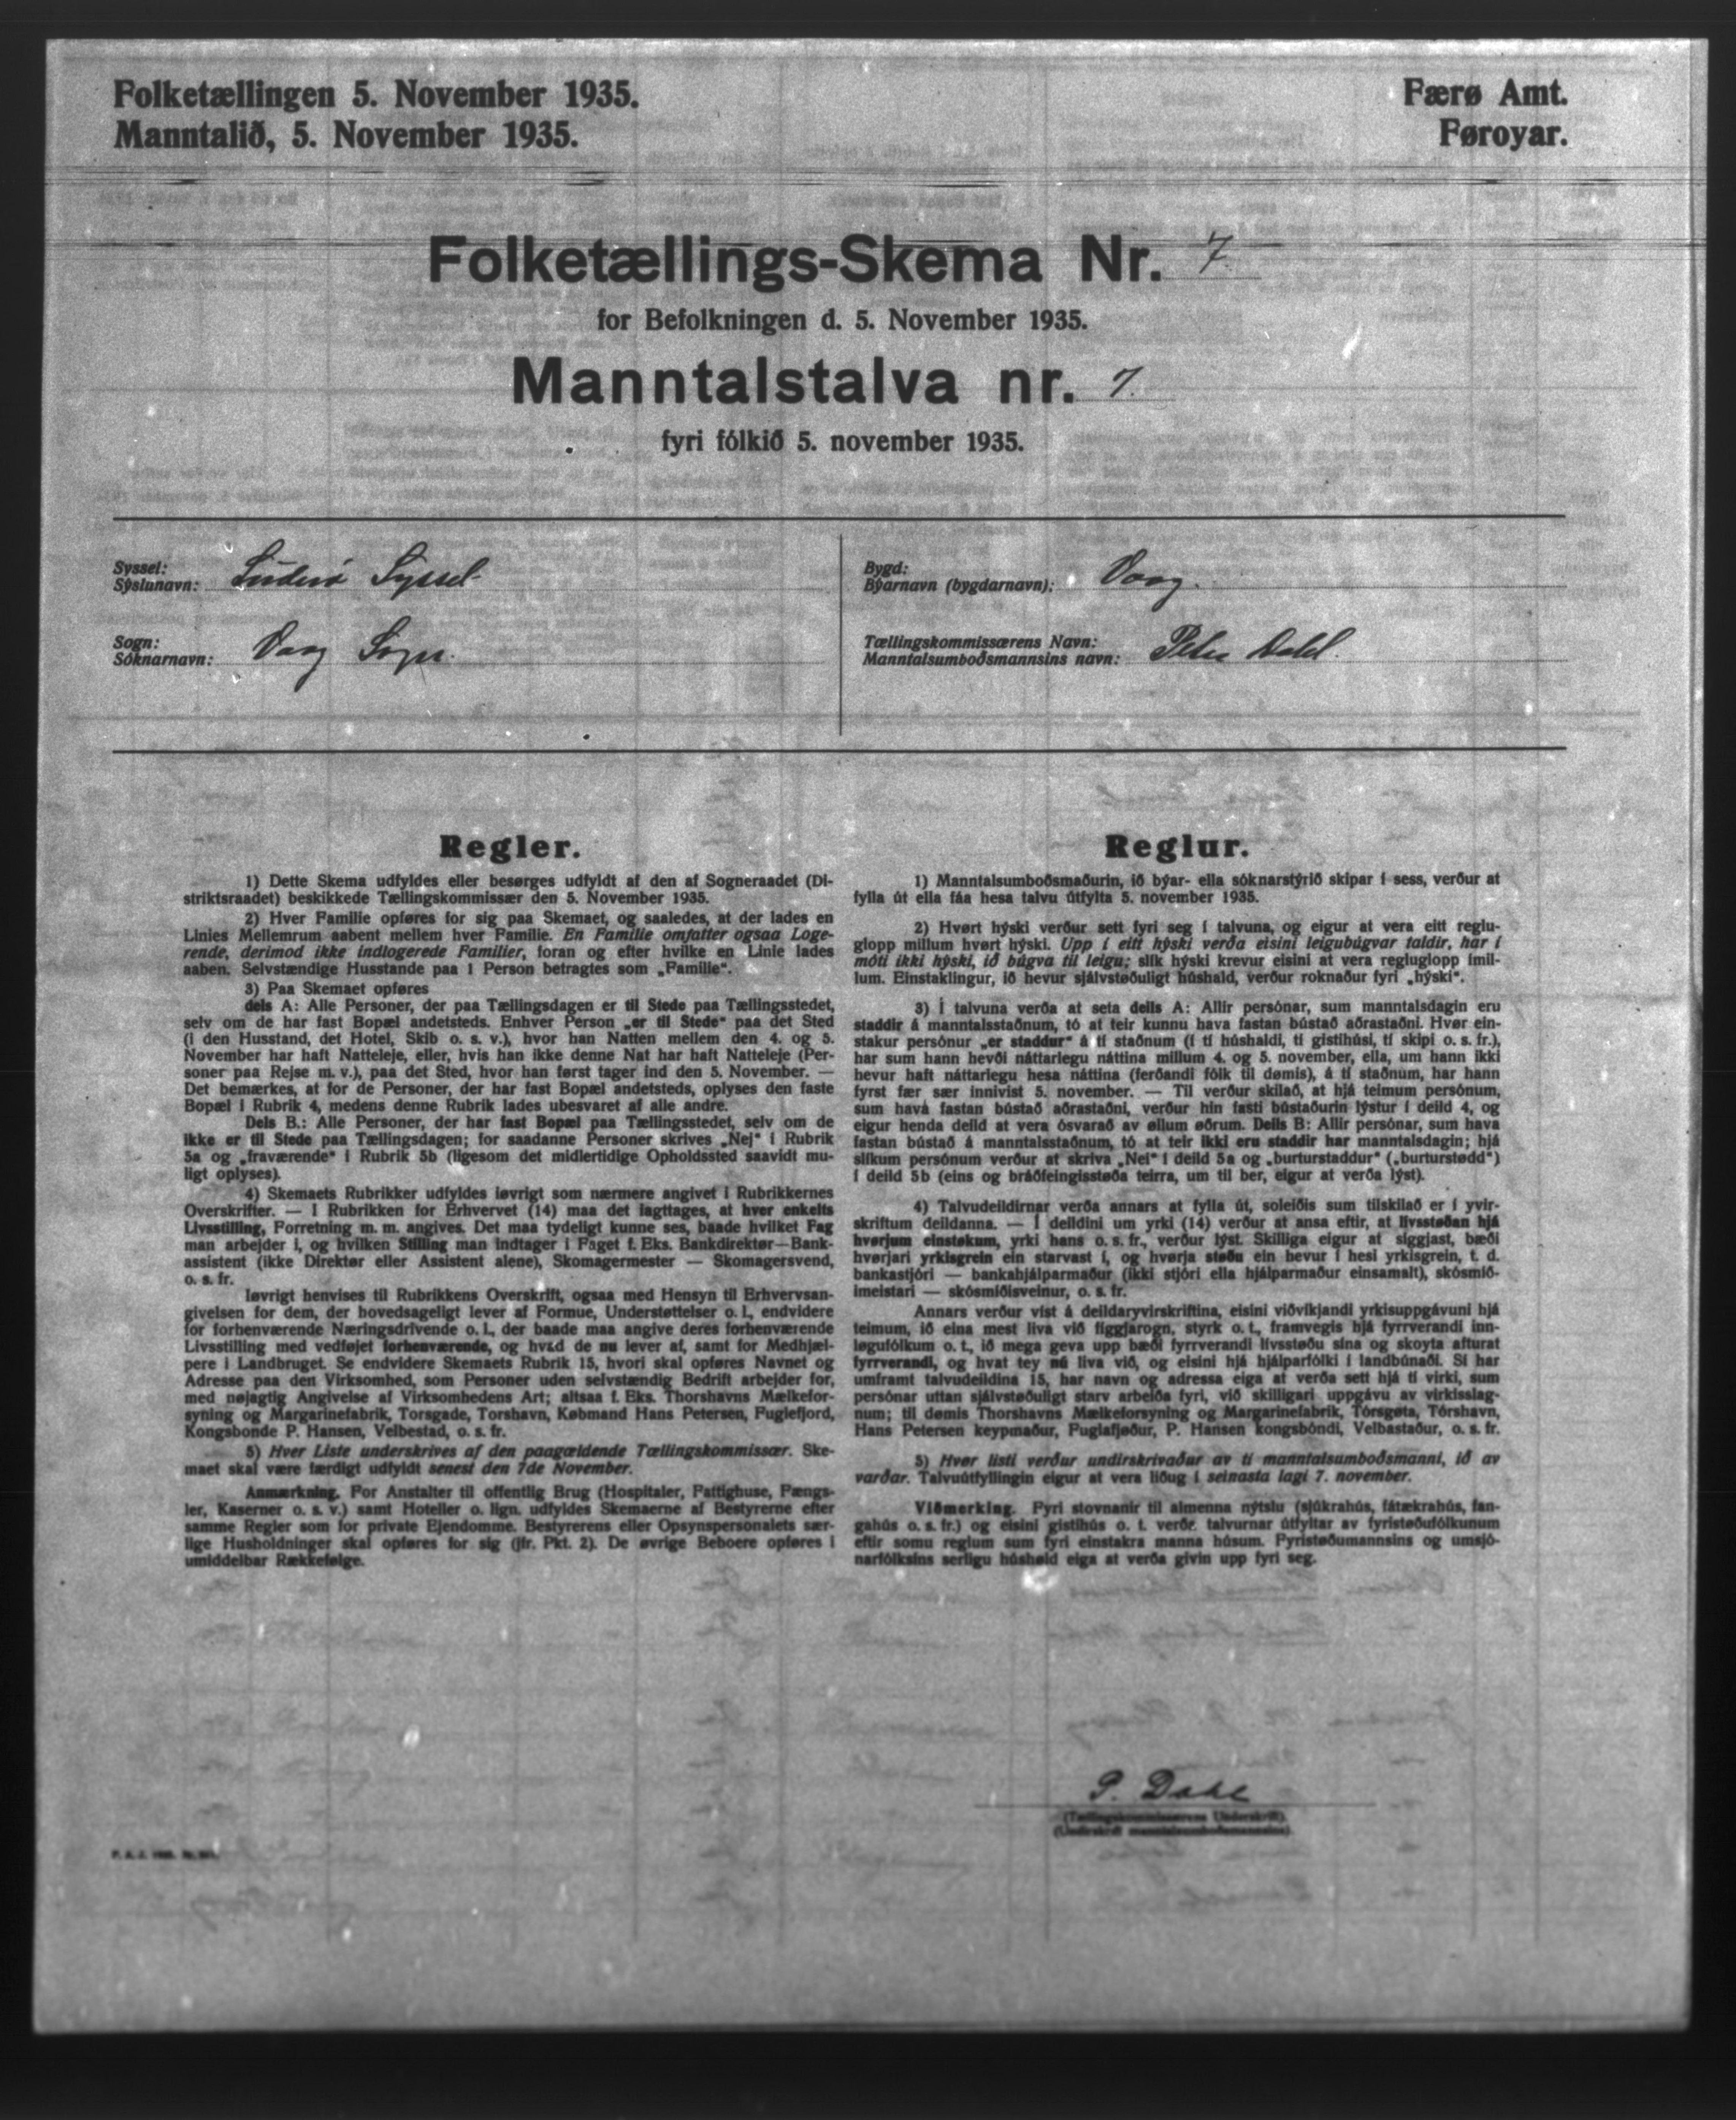 Folketællingen 5. November 1935.
Manntalið, 5. November 1935.
Færø Amt.
Føroyar.
Folketællings-Skema Nr. 7.
for Befolkningen d. 5. November 1935.
Manntalstalva nr. 7.
fyri fólkið 5. november 1935.
Syssel:
Sýslunavn: Suderø Syssel.
Sogn:
Sóknarnavn: Vaag Sogn.
Bygd:
Býarnavn (bygdarnavn): Vaag.
Tællingskommissærens Navn:
Manntalsumboðsmannsins navn: Peter Dahl.
Regler.
1) Dette Skema udfyldes eller besørges udfyldt af den af Sogneraadet (Di-
striktsraadet) beskikkede Tællingskommissær den 5. November 1935.
2) Hver Familie opføres for sig paa Skemaet, og saaledes, at der lades en
Linies Mellemrum aabent mellem hver Familie. En Familie omfatter ogsaa Loge-
rende, derimod ikke indlogerede Familier, foran og efter hvilke en Linie lades
aaben. Selvstændige Husstande paa 1 Person betragtes som „Familie“.
3) Paa Skemaet opføres
dels A: Alle Personer, der paa Tællingsdagen er til Stede paa Tællingsstedet,
selv om de har fast Bopæl andetsteds. Enhver Person „er til Stede“ paa det Sted
(i den Husstand, det Hotel, Skib o. s. v.), hvor han Natten mellem den 4. og 5.
November har haft Natteleje, eller, hvis han ikke denne Nat har haft Natteleje (Per-
soner paa Rejse m. v.), paa det Sted, hvor han først tager ind den 5. November. —
Det bemærkes, at for de Personer, der har fast Bopæl andetsteds, oplyses den faste
Bopæl i Rubrik 4, medens denne Rubrik lades ubesvaret af alle andre.
Dels B.: Alle Personer, der har fast Bopæl paa Tællingsstedet, selv om de
ikke er til Stede paa Tællingsdagen; for saadanne Personer skrives „Nej“ i Rubrik
5a og „fraværende“ i Rubrik 5b (ligesom det midlertidige Opholdssted saavidt mu-
ligt oplyses).
4) Skemaets Rubrikker udfyldes iøvrigt som nærmere angivet i Rubrikkernes
Overskrifter. — I Rubrikken for Erhvervet (14) maa det iagttages, at hver enkelts
Livsstilling, Forretning m. m. angives. Det maa tydeligt kunne ses, baade hvilket Fag
man arbejder i, og hvilken Stilling man indtager i Faget f. Eks. Bankdirektør—Bank-
assistent (ikke Direktør eller Assistent alene), Skomagermester — Skomagersvend,
o. s. fr.
Iøvrigt henvises til Rubrikkens Overskrift, ogsaa med Hensyn til Erhvervsan-
givelsen for dem, der hovedsageligt lever af Formue, Understøttelser o. l., endvidere
for forhenværende Næringsdrivende o. l., der baade maa angive deres forhenværende
Livsstilling med vedføjet forhenværende, og hvad de nu lever af, samt for Medhjæl-
pere i Landbruget. Se endvidere Skemaets Rubrik 15, hvori skal opføres Navnet og
Adresse paa den Virksomhed, som Personer uden selvstændig Bedrift arbejder for,
med nøjagtig Angivelse af Virksomhedens Art; altsaa f. Eks. Thorshavns Mælkefor-
syning og Margarinefabrik, Torsgade, Torshavn, Købmand Hans Petersen, Fuglefjord,
Kongsbonde P. Hansen, Velbestad, o. s. fr.
5) Hver Liste underskrives af den paagældende Tællingskommissær. Ske-
maet skal være færdigt udfyldt senest den 7de November.
Anmærkning. For Anstalter til offentlig Brug (Hospitaler, Fattighuse, Fængs-
ler, Kaserner o. s. v.) samt Hoteller o. lign. udfyldes Skemaerne af Bestyrerne efter
samme Regler som for private Ejendomme. Bestyrerens eller Opsynspersonalets sær-
lige Husholdninger skal opføres for sig (jfr. Pkt. 2). De øvrige Beboere opføres i
umiddelbar Rækkefølge.
Reglur.
1) Manntalsumboðsmaðurin, ið býar- ella sóknarstýrið skipar í sess, verður at
fylla út ella fáa hesa talvu útfylta 5. november 1935.
2) Hvørt hýski verður sett fyri seg í talvuna, og eigur at vera eitt reglu-
glopp millum hvørt hýski. Upp í eitt hýski verða eisini leigubúgvar taldir, har í
móti ikki hýski, ið búgva til leigu; slík hýski krevur eisini at vera regluglopp ímil-
lum. Einstaklingur, ið hevur sjálvstøðuligt húshald, verður roknaður fyri „hýski“.
3) Í talvuna verða at seta deils A: Allir persónar, sum manntalsdagin eru
staddir á manntalsstaðnum, tó at teir kunnu hava fastan bústað aðrastaðni. Hvør ein-
stakur persónur „er staddur“ á tí staðnum (í tí húshaldi, tí gistihúsi, tí skipi o. s. fr.),
har sum hann hevði náttarlegu náttina millum 4. og 5. november, ella, um hann ikki
hevur haft náttarlegu hesa náttina (ferðandi fólk til dømis), á tí staðnum, har hann
fyrst fær sær innivist 5. november. — Til verður skilað, at hjá teimum persónum,
sum hava fastan bústað aðrastaðni, verður hin fasti bústaðurin lýstur í deild 4, og
eigur henda deild at vera ósvarað av øllum øðrum. Deils B: Allir persónar, sum hava
fastan bústað á manntalsstaðnum, tó at teir ikki eru staddir har manntalsdagin; hjá
slíkum persónum verður at skriva „Nei“ í deild 5a og „burturstaddur“ („burturstødd“)
í deild 5b (eins og bráðfeingisstøða teirra, um til ber, eigur at verða lýst).
4) Talvudeildirnar verða annars at fylla út, soleiðis sum tilskilað er í yvir-
skriftum deildanna. — Í deildini um yrki (14) verður at ansa eftir, at livsstøðan hjá
hvørjum einstøkum, yrki hans o. s. fr., verður lýst. Skilliga eigur at siggjast, bæði
hvørjari yrkisgrein ein starvast í, og hvørja støðu ein hevur í hesi yrkisgrein, t. d.
bankastjóri — bankahjálparmaður (ikki stjóri ella hjálparmaður einsamalt), skósmið-
imeistari — skósmiðisveinur, o. s. fr.
Annars verður víst á deildaryvirskriftina, eisini viðvíkjandi yrkisuppgávuni hjá
teimum, ið eina mest liva við figgjarogn, styrk o. t., framvegis hjá fyrrverandi inn-
løgufólkum o. t., ið mega geva upp bæði fyrrverandi livsstøðu sína og skoyta afturat
fyrrverandi, og hvat tey nú liva við, og eisini hjá hjálparfólki í landbúnaði. Sí har
umframt talvudeildina 15, har navn og adressa eiga at verða sett hjá tí virki, sum
persónar uttan sjálvstøðuligt starv arbeiða fyri, við skilligari uppgávu av virkisslag-
num; til dømis Thorshavns Mælkeforsyning og Margarinefabrik, Tórsgøta, Tórshavn,
Hans Petersen keypmaður, Fuglafjøður, P. Hansen kongsbóndi, Velbastaður, o. s. fr.
5) Hvør listi verður undirskrivaður av tí manntalsumboðsmanni, ið av
varðar. Talvuútfyllingin eigur at vera liðug í seinasta lagi 7. november.
Viðmerking. Fyri stovnanir til almenna nýtslu (sjúkrahús, fátækrahús, fan-
gahús o. s. fr.) og eisini gistihús o. t. verða talvurnar útfyltar av fyristøðufólkunum
eftir somu reglum sum fyri einstakra manna húsum. Fyristøðumannsins og umsjó-
narfólksins serligu húshøld eiga at verða givin upp fyri seg.
P. Dahl
(Tællingskommissærens Underskrift).
(Undirskrift manntalsumboðsmannsins).